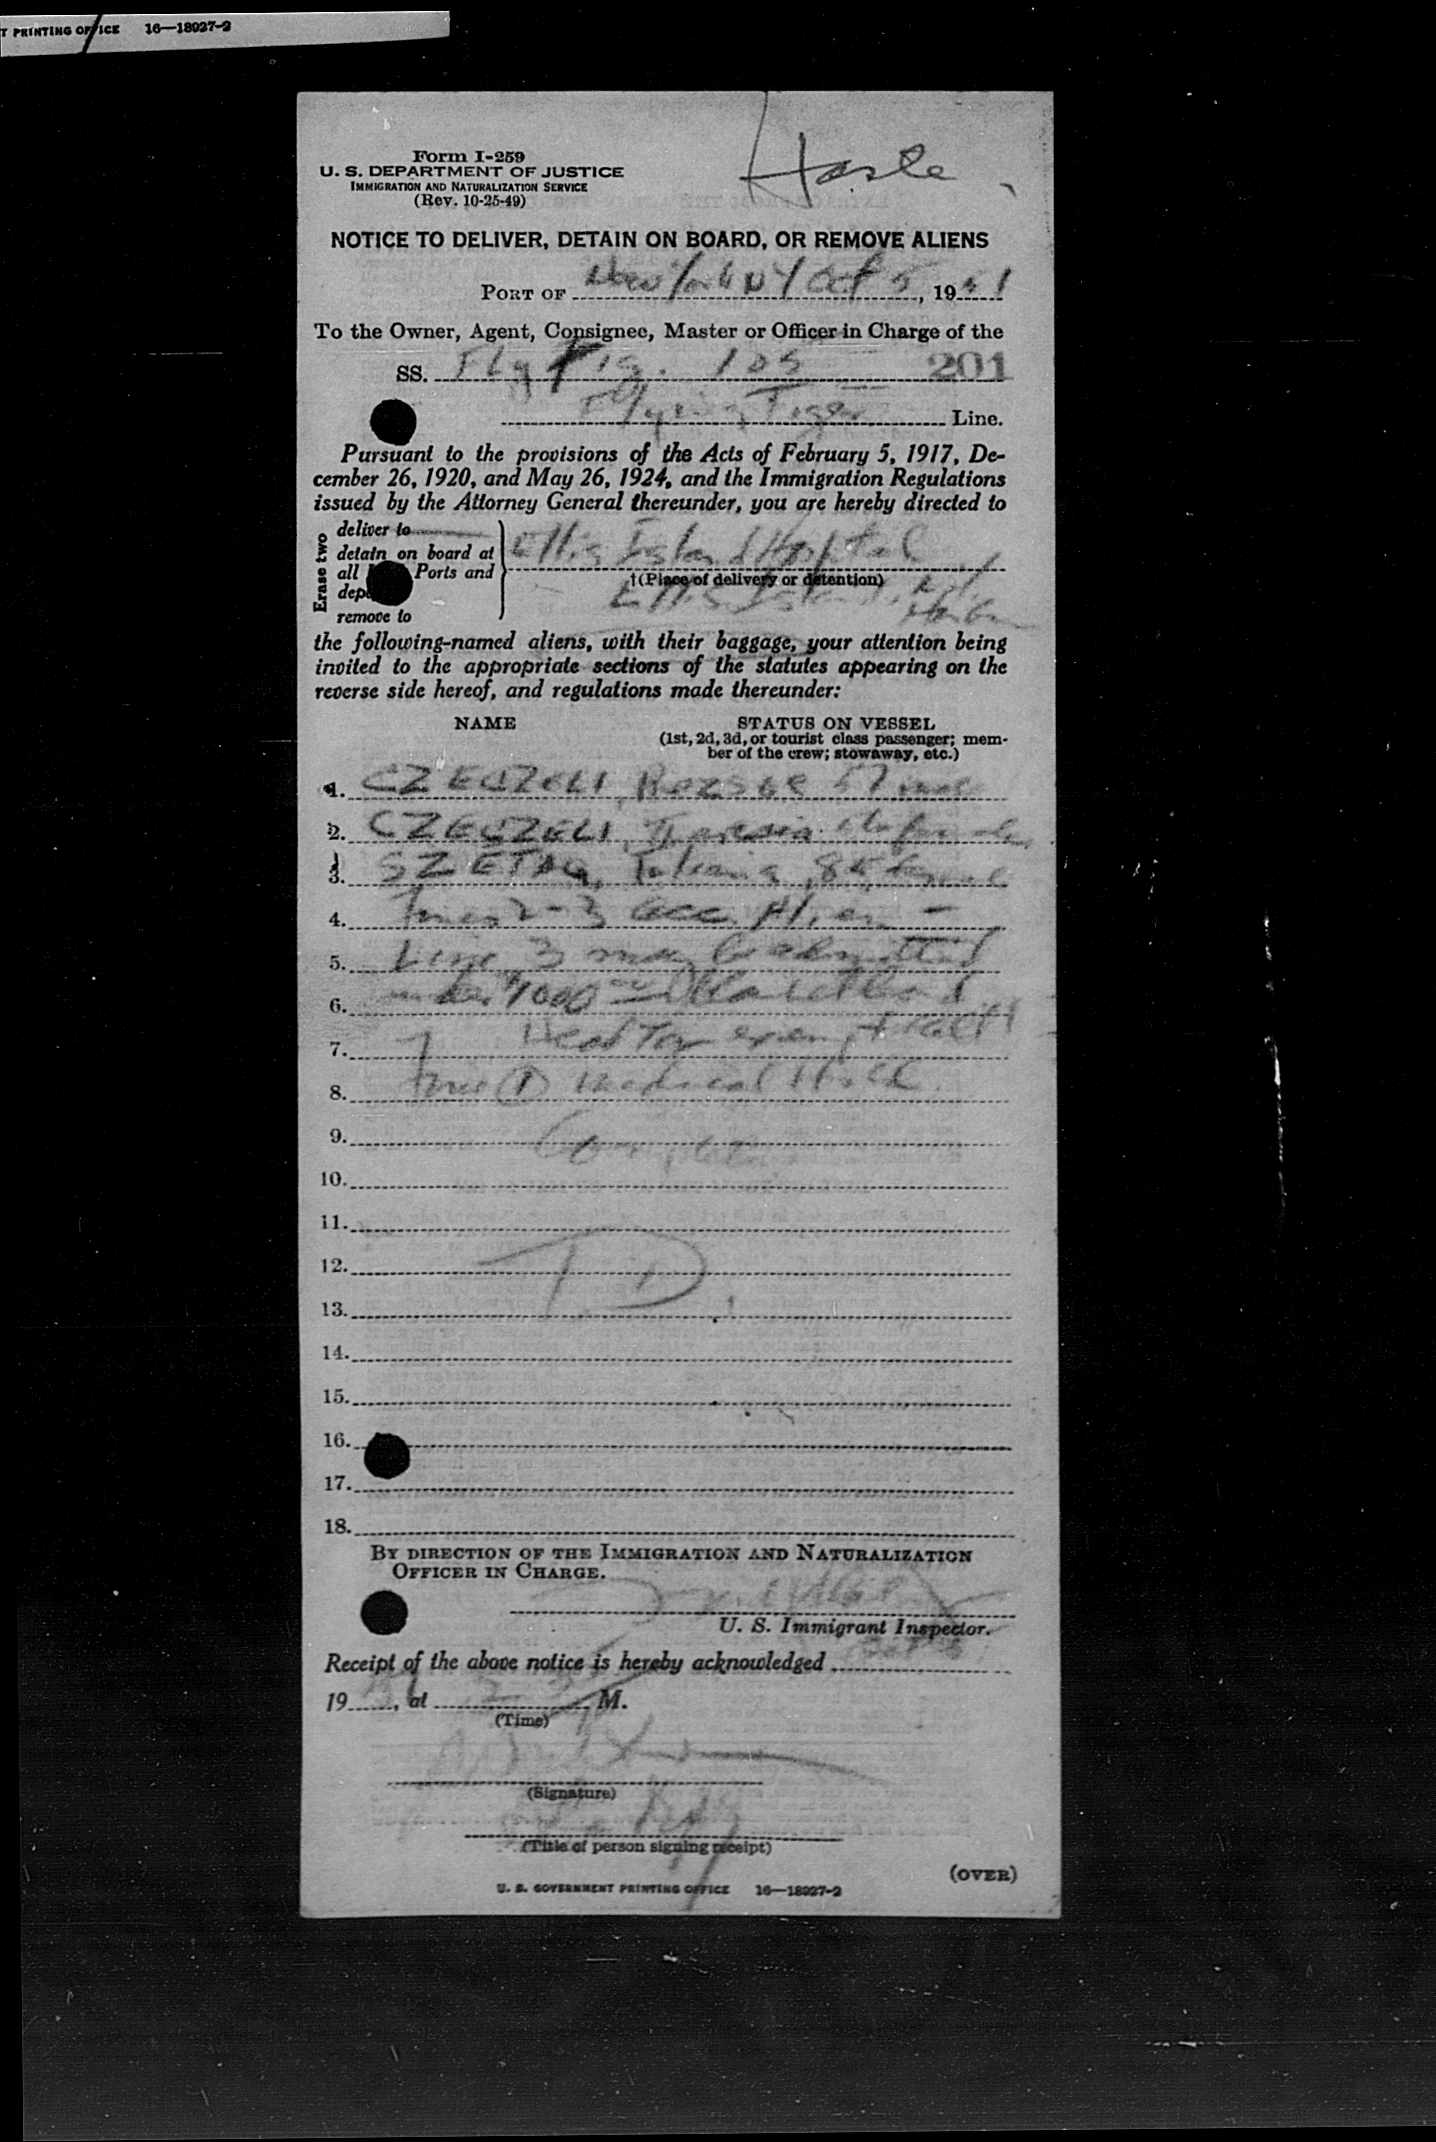 T PRINTING OFFICE 16—18927-2
Haste
Form I-259
U. S. DEPARTMENT OF JUSTICE
IMMIGRATION AND NATURALIZATION SERVICE
(Rev. 10-25-49)
NOTICE TO DELIVER, DETAIN ON BOARD, OR REMOVE ALIENS
PORT OF New York NY Oct 5, 1951
To the Owner, Agent, Consignee, Master or Officer in Charge of the
SS. Fly Tig. 105 201
Flying Tiger Line.
Pursuant to the provisions of the Acts of February 5, 1917, De-
cember 26, 1920, and May 26, 1924, and the Immigration Regulations
issued by the Attorney General thereunder, you are hereby directed to
Erase two
deliver to
detain on board at Ellis Island Hospital
all Ports and
†(Place of delivery or detention)
dep Ellis Island, N.Y.
Harbor
remove to
the following-named aliens, with their baggage, your attention being
invited to the appropriate sections of the statutes appearing on the
reverse side hereof, and regulations made thereunder:
NAME STATUS ON VESSEL
(1st, 2d, 3d, or tourist class passenger; mem-
ber of the crew; stowaway, etc.)
1. Rezsoe 57 male
2. female
3. 85 female
4. Lines 2-3 Acc. Alien -
5. Line 3 may be admitted
6. under $1000
7. Head Tax exempt
8. Line (1) medical Hold
9.
10.
11.
12. T.D.
13.
14.
15.
16.
17.
18.
BY DIRECTION OF THE IMMIGRATION AND NATURALIZATION
OFFICER IN CHARGE.
U. S. Immigrant Inspector.
Receipt of the above notice is hereby acknowledged
19 , at M.
(Time)
(Signature)
(Title of person signing receipt)
(OVER)
U. S. GOVERNMENT PRINTING OFFICE 16—18927-2